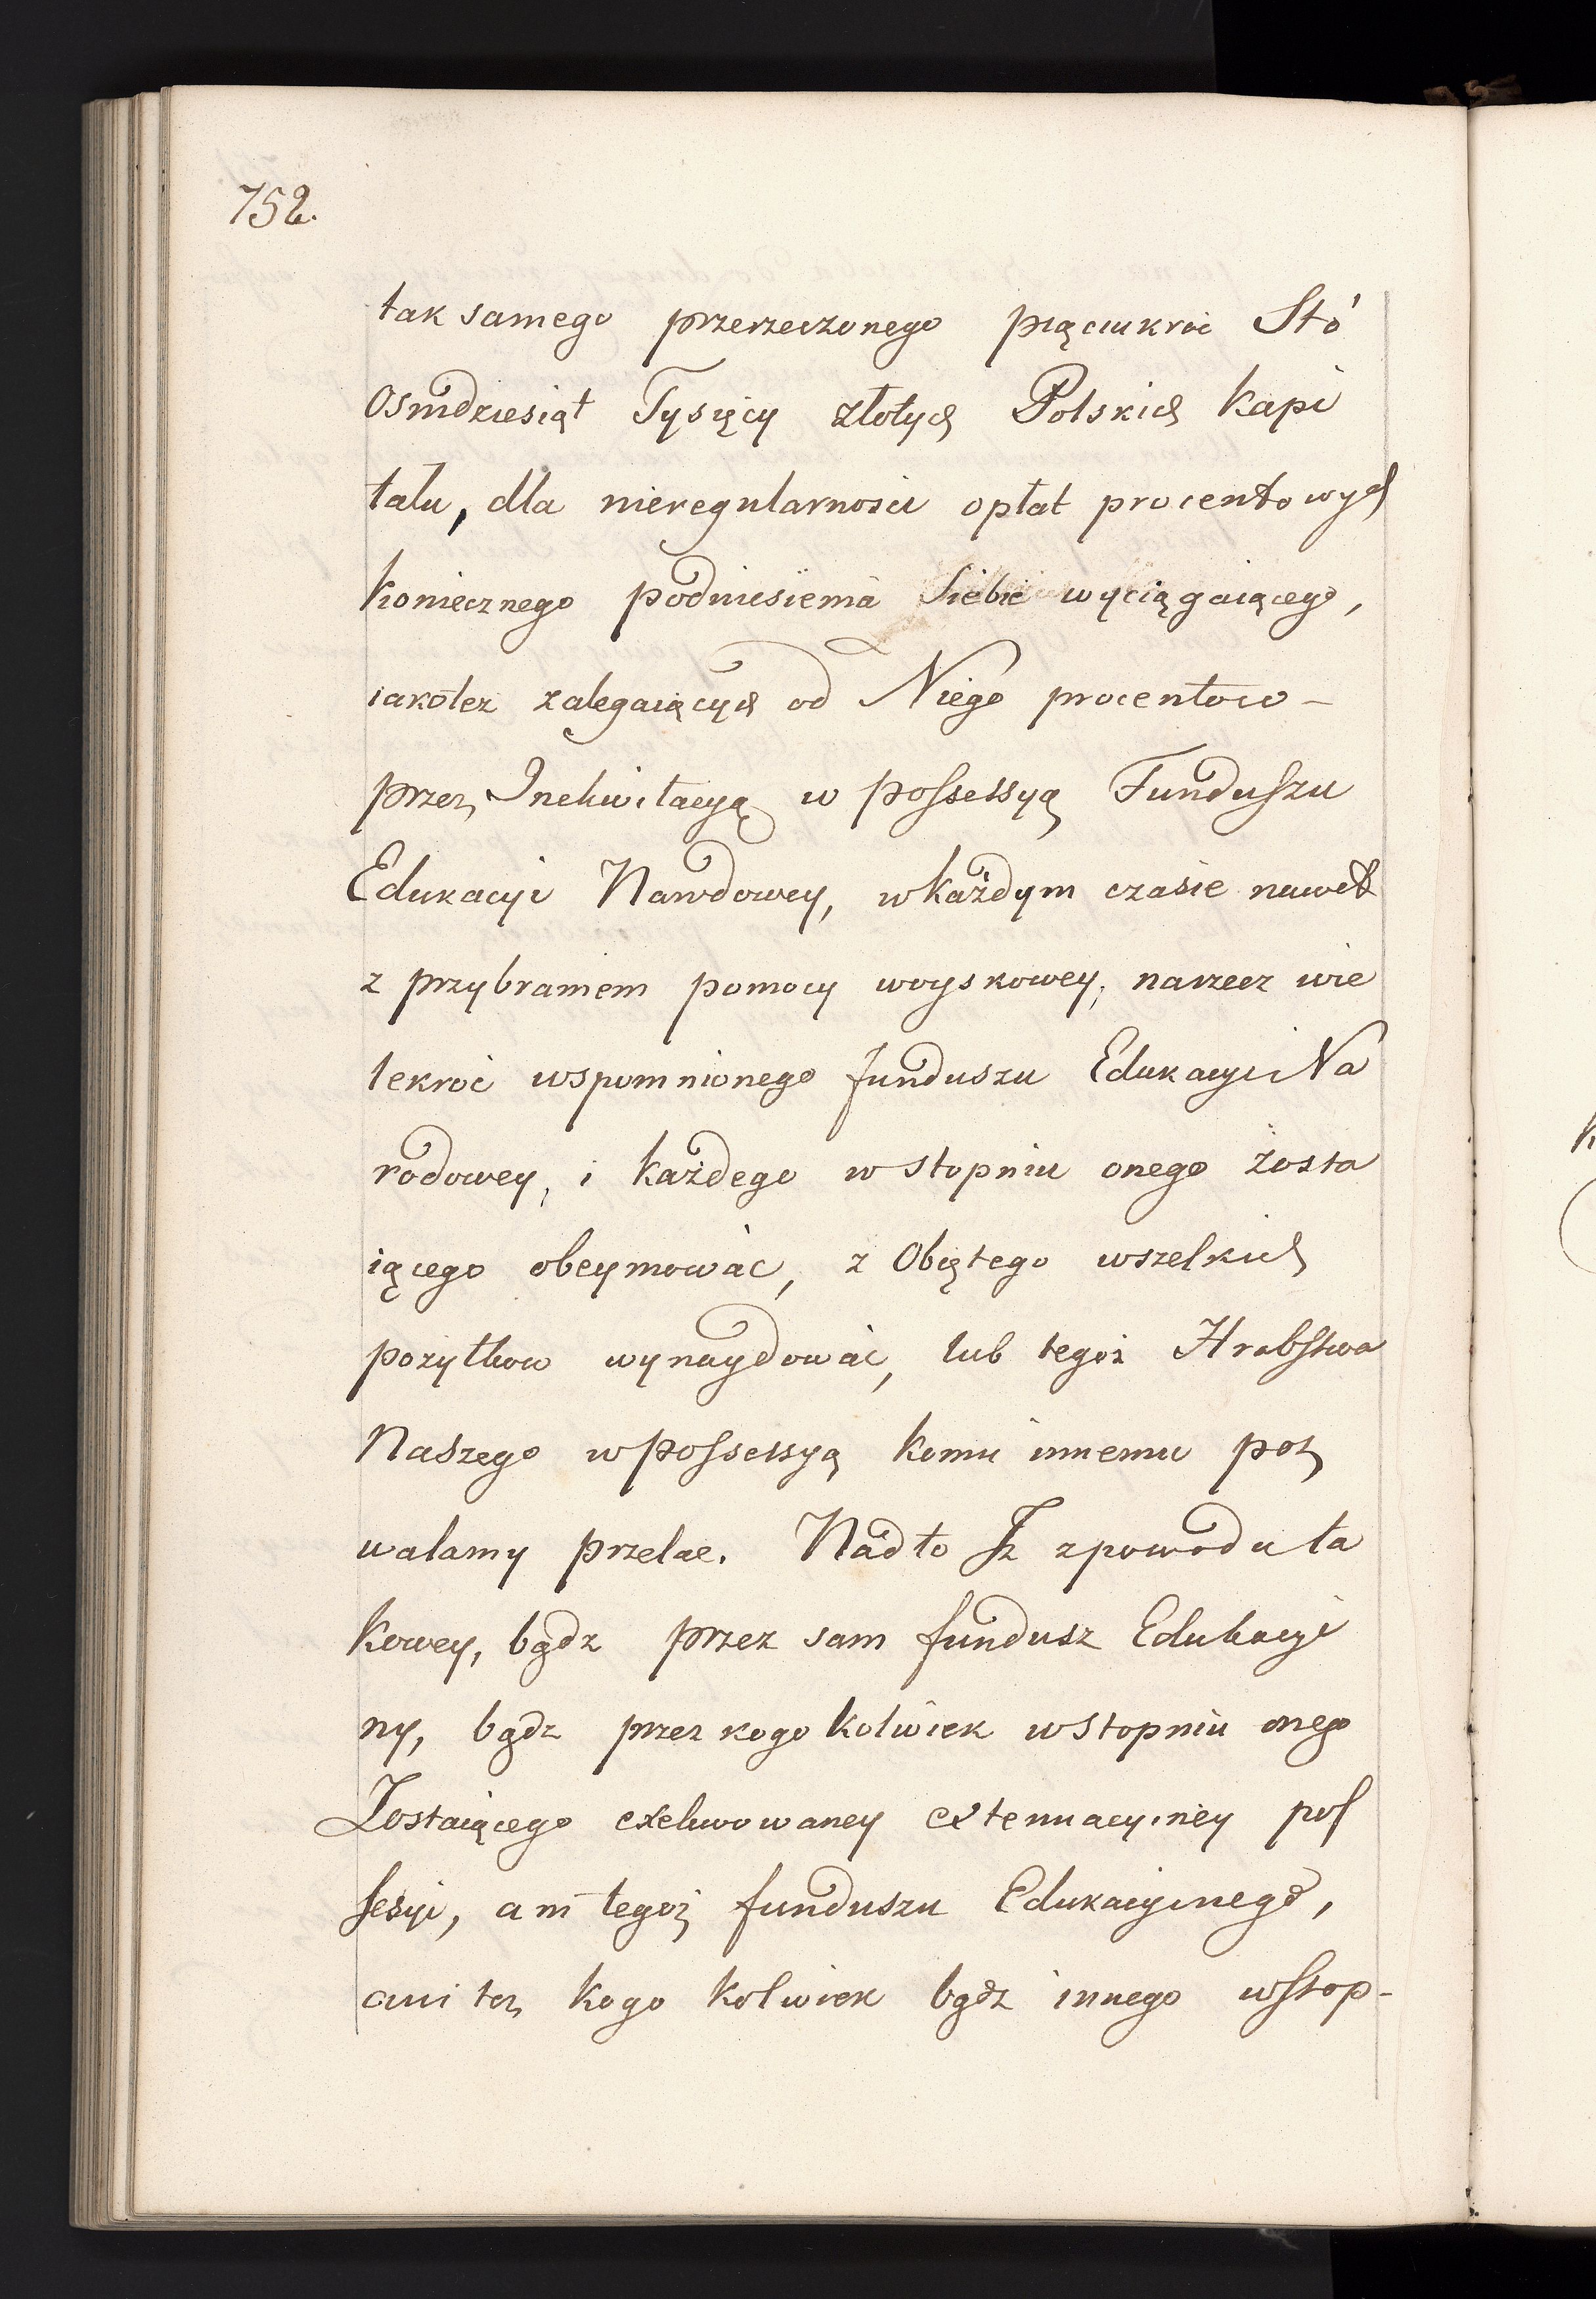 752.
tak samego przerzeczonego pięciukroć Stó
Osmdziesiąt Tysięcy złotych Polskich Kapi
tału, dla nieregularności opłat procentowych
koniecznego podniesienia Siebie wyciągaiącego,
iakotez zalegaiących od Niego procentow –
przez Inekwitacyą w possessyą Funduszu
Edukacyi Narodowey, w każdym czasie nawet
z przybraniem pomocy woyskowey, narzecz wie
lekroć wspomnionego funduszu Edukacyi Na
rodowey, i każdego w stopniu onego zosta
iącego obeymować, z Obiętego wszelkich
pozytkow wynaydować, lub tegoż Hrabstwa
Naszego w possessyą komu innemu poz
walamy przelac. Nadto Iż z powodu ta
kowey, bądz przez sam fundusz Edukacyi
ny, bądz przez kogo kolwiek w stopniu onego
Zostaiącego exekwowaney extenuacyiney pos
sesyi, ani tegoż funduszu Edukacyinego,
ani tez kogo kolwiek bądz innego w stop-